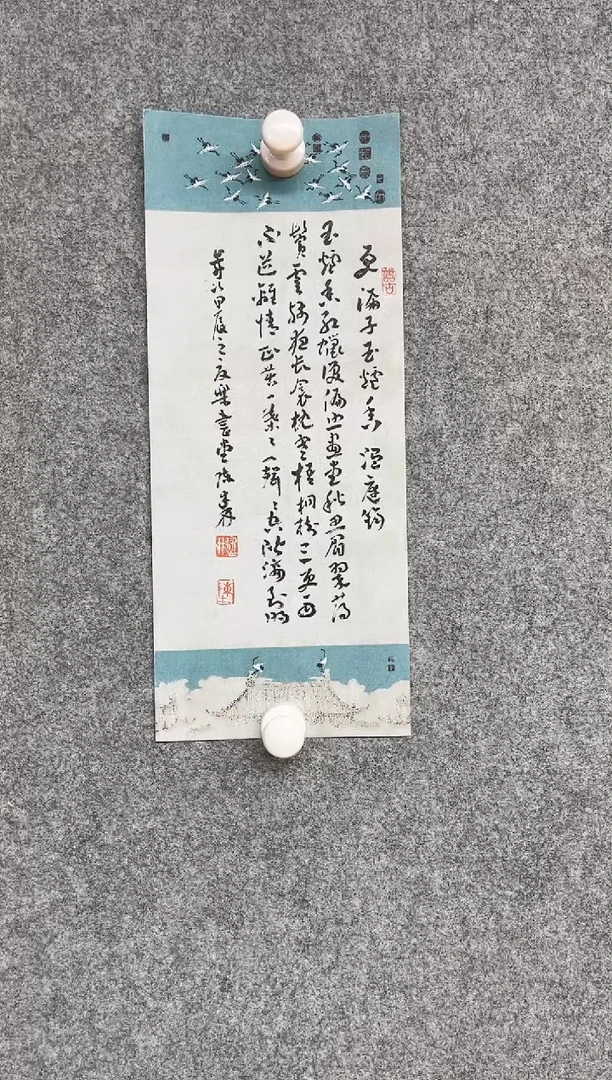 更漏子玉爐香 温庭筠
玉爐香紅蠟淚偏照畫堂秋思眉翠薄
鬢雲殘夜長衾枕寒梧桐樹三更雨
不道離情正苦一葉々一聲々空階滴到明
歲次甲辰之